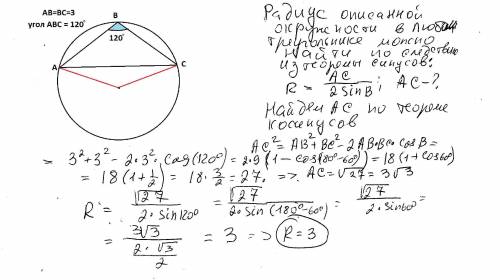 AB=BC=3
угол ABC = 120°
B
120°
A
C
Радиус описанной
окружности в любом
треугольнике можно
найти по следствию
из теоремы синусов:
R = AC / 2 sin B ; AC-?
Найдем AC по теореме
косинусов
AC² = AB² + BC² - 2AB·BC·cos B =
= 3² + 3² - 2·3²·cos(120°) = 2·9(1 - cos(180°-60°)) = 18(1+cos60°)
= 18(1 + 1/2) = 18·3/2 = 27. => AC = √27 = 3√3
R = √27 / 2·sin120° = √27 / 2·sin(180°-60°) = √27 / 2·sin60° =
= 3√3 / 2·√3/2 = 3 => R=3